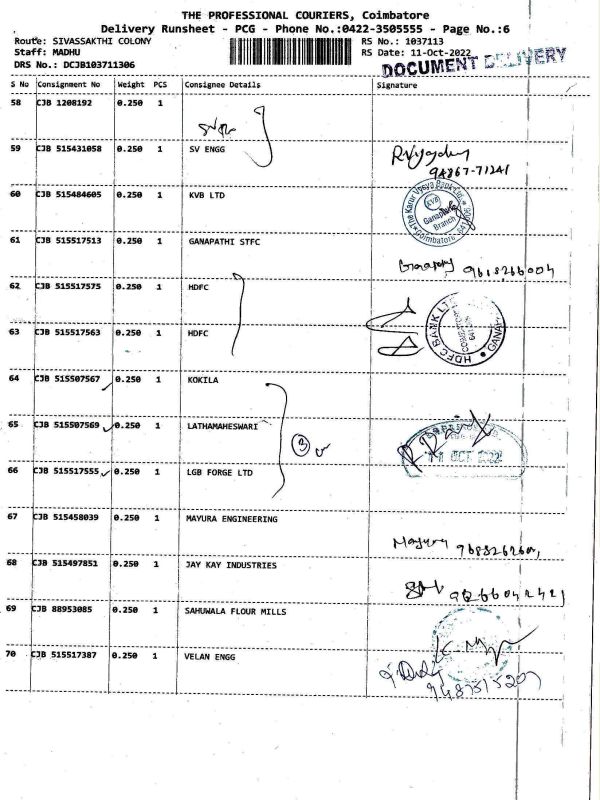 THE PROFESSIONAL COURIERS, Coimbatore
Delivery Runsheet - PCG - Phone No.:0422-3505555 - Page No.:6
Route: SIVASSAKTHI COLONY
RS No.: 1037113
Staff: MADHU
RS Date: 11-Oct-2022
DRS No.: DCJB103711306
DOCUMENT DELIVERY
S No Consignment No Weight PCS Consignee Details Signature
58 CJB 1208192 0.250 1
59 CJB 515431058 0.250 1 SV ENGG
94867-71241
60 CJB 515484605 0.250 1 KVB LTD
The Karur Vysya Bank Ltd.
KVB
Ganapathy
Branch
Coimbatore
61 CJB 515517513 0.250 1 GANAPATHI STFC
62 CJB 515517575 0.250 1 HDFC
63 CJB 515517563 0.250 1 HDFC
HDFC BANK LTD
64 CJB 515507567 0.250 1 KOKILA
65 CJB 515507569 0.250 1 LATHAMAHESWARI
3
11 OCT 2022
66 CJB 515517555 0.250 1 LGB FORGE LTD
67 CJB 515458039 0.250 1 MAYURA ENGINEERING
Mayura
68 CJB 515497851 0.250 1 JAY KAY INDUSTRIES
69 CJB 88953085 0.250 1 SAHUWALA FLOUR MILLS
70 CJB 515517387 0.250 1 VELAN ENGG